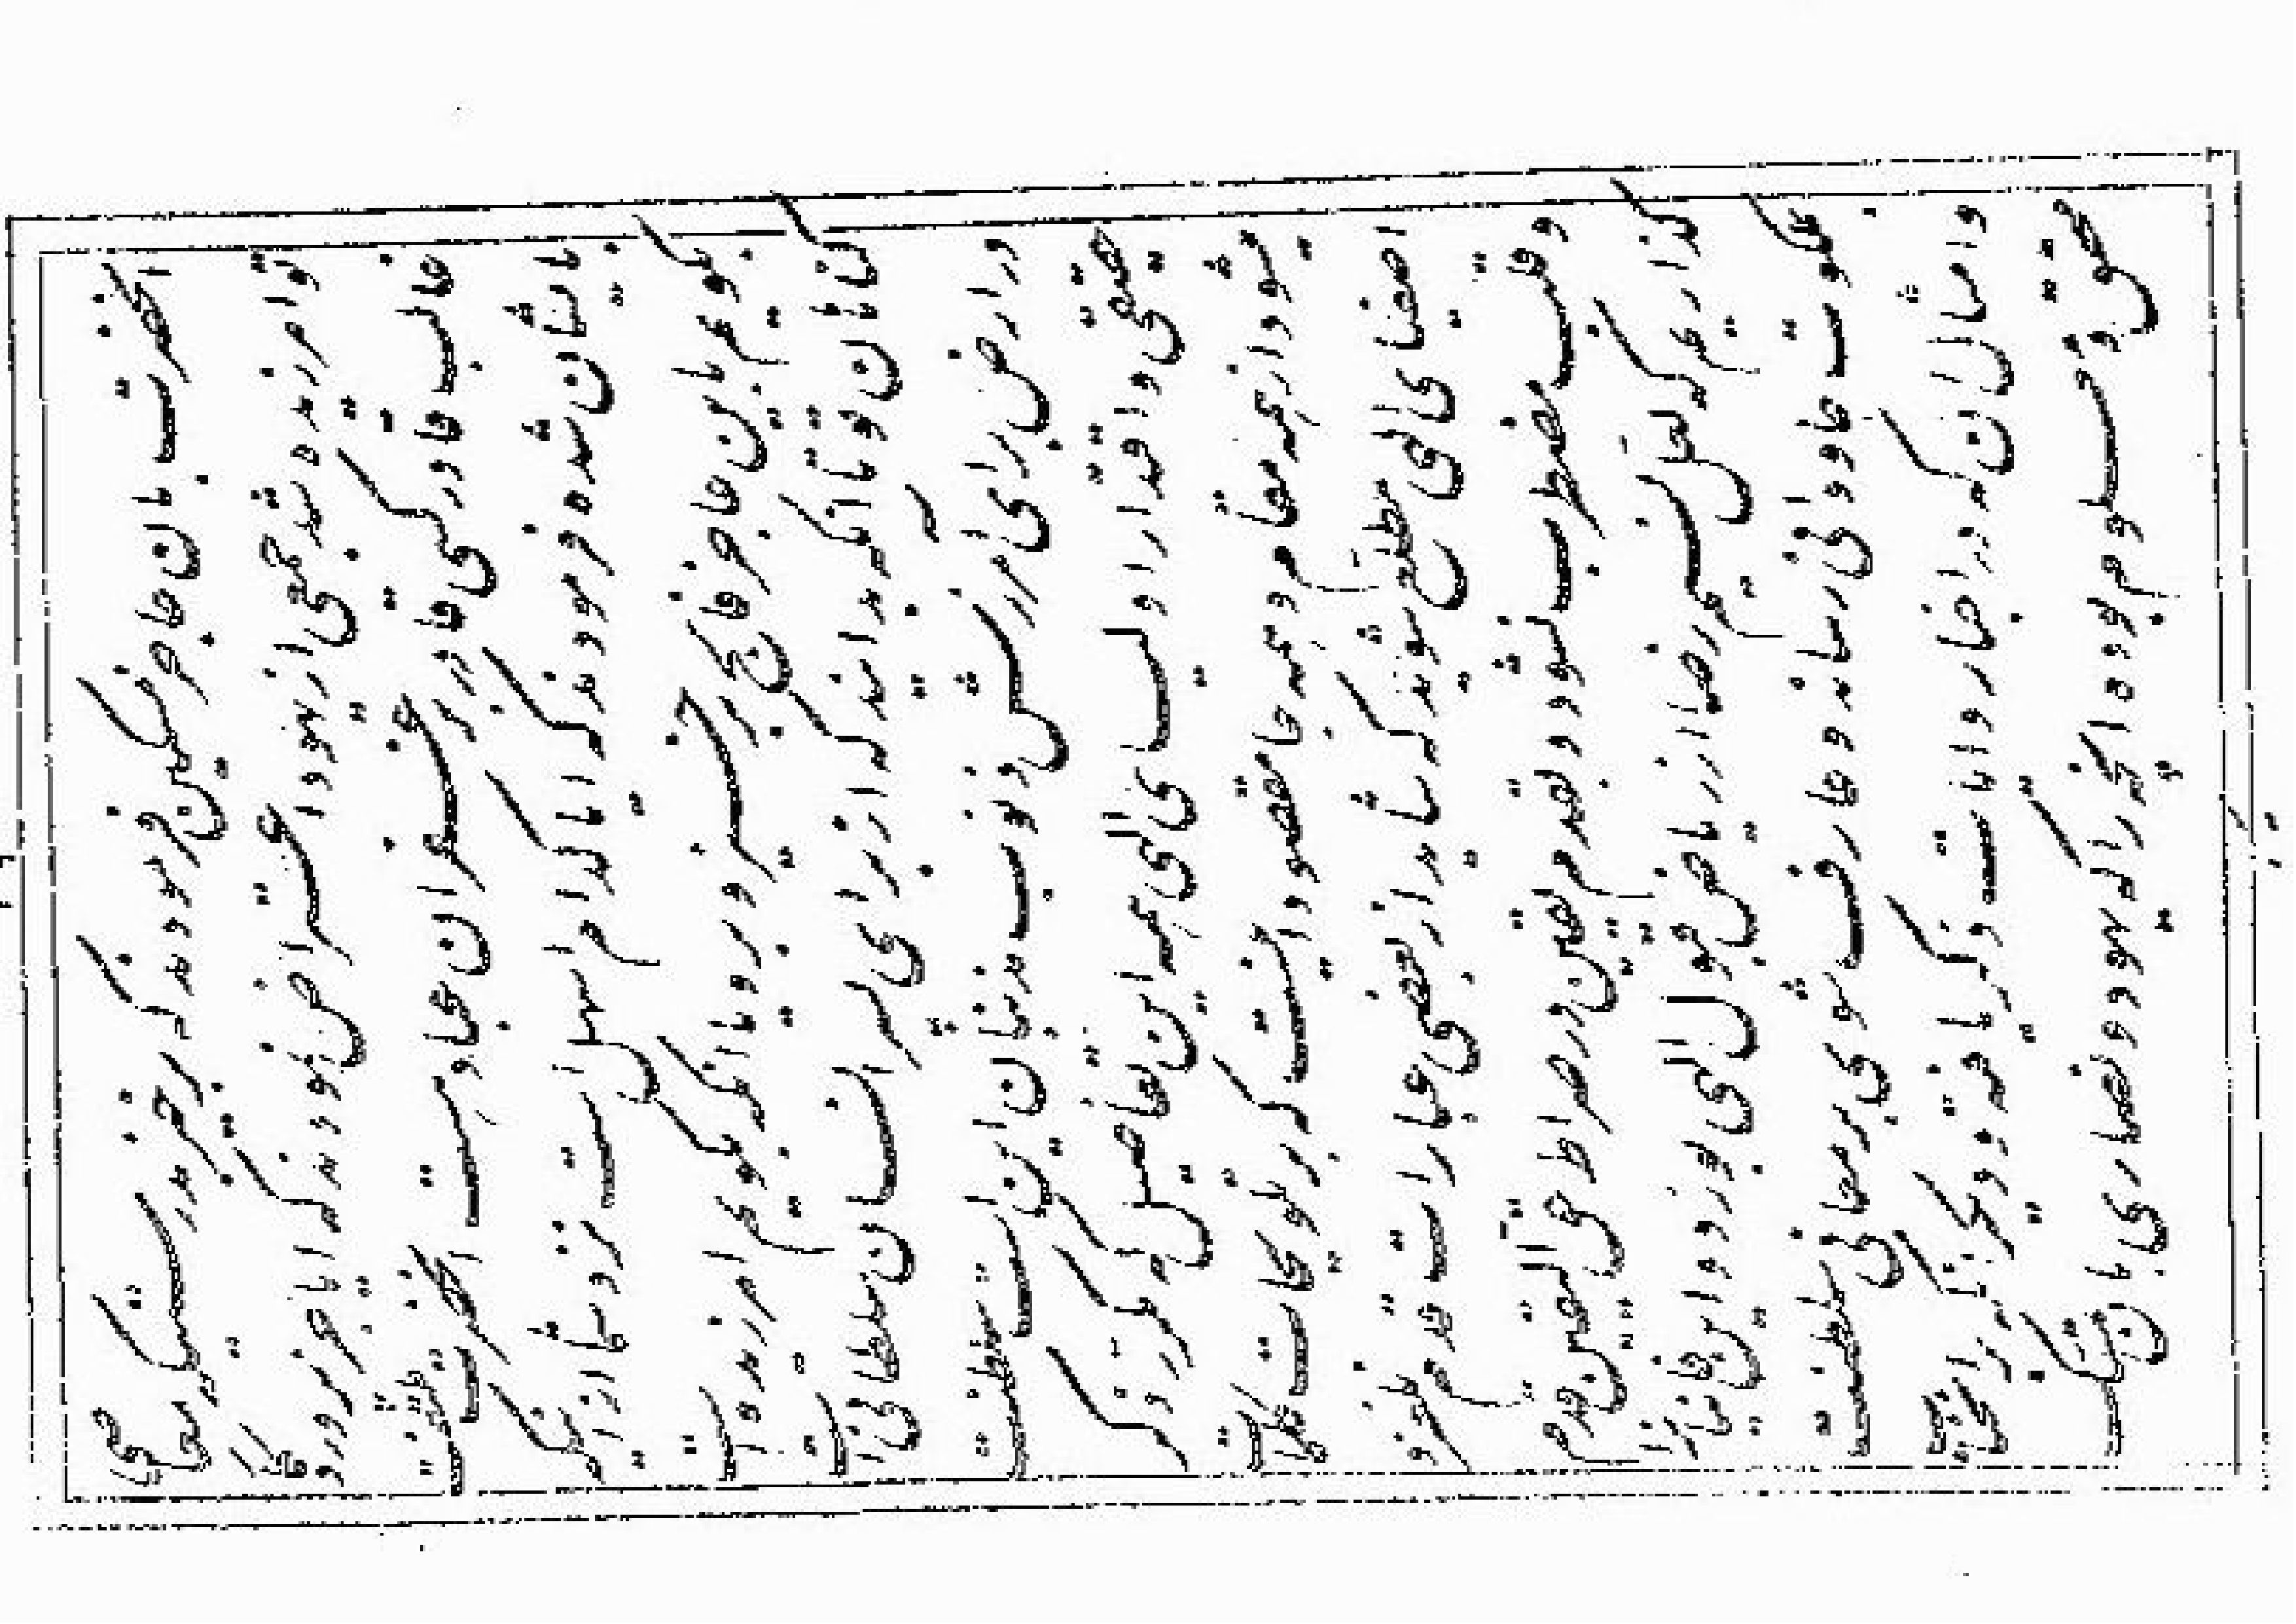 و امرزیده شد جمعی از یهود اعتراض نمودند که ایا
غالب قادر کسی قادر بر غفران عباد هست
بایشان شده فرمودند که ایا کدام اسهل است نزد شما از انکه
بگویم باین عاجز فالج که برخیز و برو یا انکه بگویم امرزیده
گناهان تو تا انکه بدانید که از برای پسر انسان سلطانی است
در ارض برای امرزش ذنوب بندگان اینست سلطنت
حقیقی و اقتدار اولیای الهی همه این تفاصیل که مکرر ذکر
میشود و از همه مقام و همه جا مقصود اینست که بر تلویحات کلمات
اصفیای الهی مطلع شوید که شاید از بعضی عبارات قدم نلغزد
و قلب مضطرب نشود و بقدم یقین در صراط حق الیقین قدم
گذاریم که لعل نسیم رضا از ریاض قبول الهی بوزد و این فانیان را
بملکوت جاودانی رساند و عارف شوی بر معانی سلطنت
و امثال ان که در اخبار و ایات ذکر یافته و دیگر انکه
محقق و معلوم بوده انچه را که یهود و نصاری بان تمسک